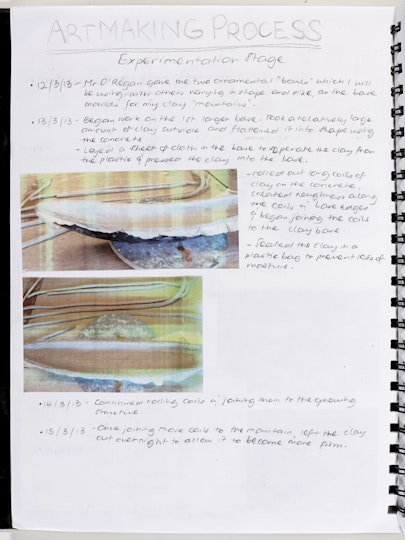 ARTMAKING PROCESS
Experimentation Stage
• 12/3/13 - Mr D'Regan gave me two ornamental "bowls" which I will
be using, with others varying in shape and size, as the base
moulds for my clay 'mountains'.
• 13/3/13 - Began work on the 1st, larger base. Took a relatively large
amount of clay outside and flattened it into shape using
the concrete
• Layed a sheet of cloth in the base to separate the clay from
the plastic & pressed the clay into the base.
- rolled out long coils of
clay on the concrete,
created roughness along
the coils n' base edges
& began joining the coils
to the clay base
- Sealed the clay in a
plastic bag to prevent loss of
moisture.
• 14/3/13 - Continued rolling coils n' joining them to the growing
structure.
• 15/3/13 - Once joining more coils to the mountain, left the clay
out overnight to allow it to become more firm.